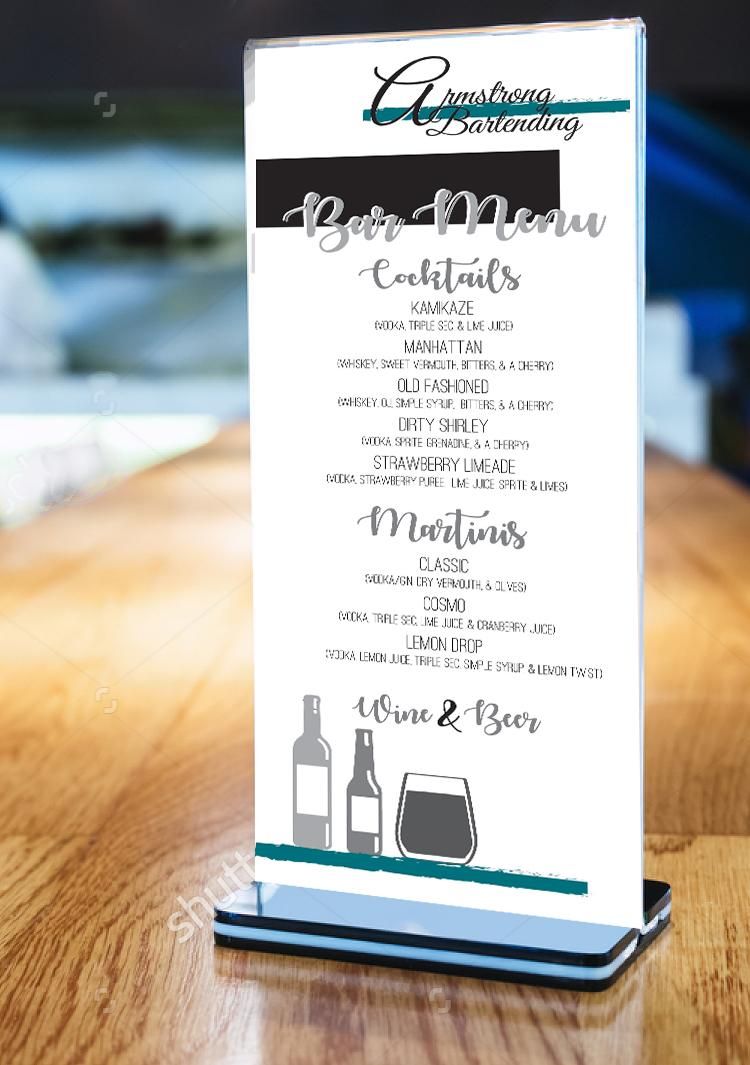 Armstrong
Bartending
Bar Menu
Cocktails
KAMIKAZE
(VODKA, TRIPLE SEC & LIME JUICE)
MANHATTAN
(WHISKEY, SWEET VERMOUTH, BITTERS, & A CHERRY)
OLD FASHIONED
(WHISKEY, OJ, SIMPLE SYRUP, BITTERS, & A CHERRY)
DIRTY SHIRLEY
(VODKA, SPRITE GRENADINE, & A CHERRY)
STRAWBERRY LIMEADE
(VODKA, STRAWBERRY PUREE, LIME JUICE SPRITE & LIMES)
Martinis
CLASSIC
(VODKA/GIN, DRY VERMOUTH, & OLIVES)
COSMO
(VODKA, TRIPLE SEC, LIME JUICE & CRANBERRY JUICE)
LEMON DROP
(VODKA, LEMON JUICE, TRIPLE SEC, SIMPLE SYRUP & LEMON TWIST)
Wine & Beer
shutt